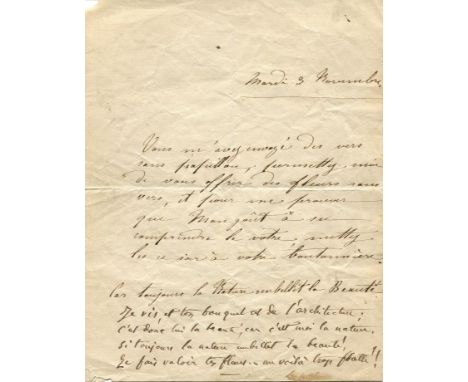 Mardi 3 Novembre
Vous m'avez envoyé des vers
sans papillon, permettez moi
de vous offrir des fleurs sans
vers, et pour me prouver
que Mon goût à su
comprendre le votre, mettez
les ce soir à votre boutonnière.
Car toujours la Nature embellit la Beauté
Je vis, et ton bouquet et de l'architecture;
c'est donc lui la beauté, car c'est moi la nature.
Si toujours la nature embellit la beauté!
Je fais valoir tes fleurs me voilà trop flatté!!